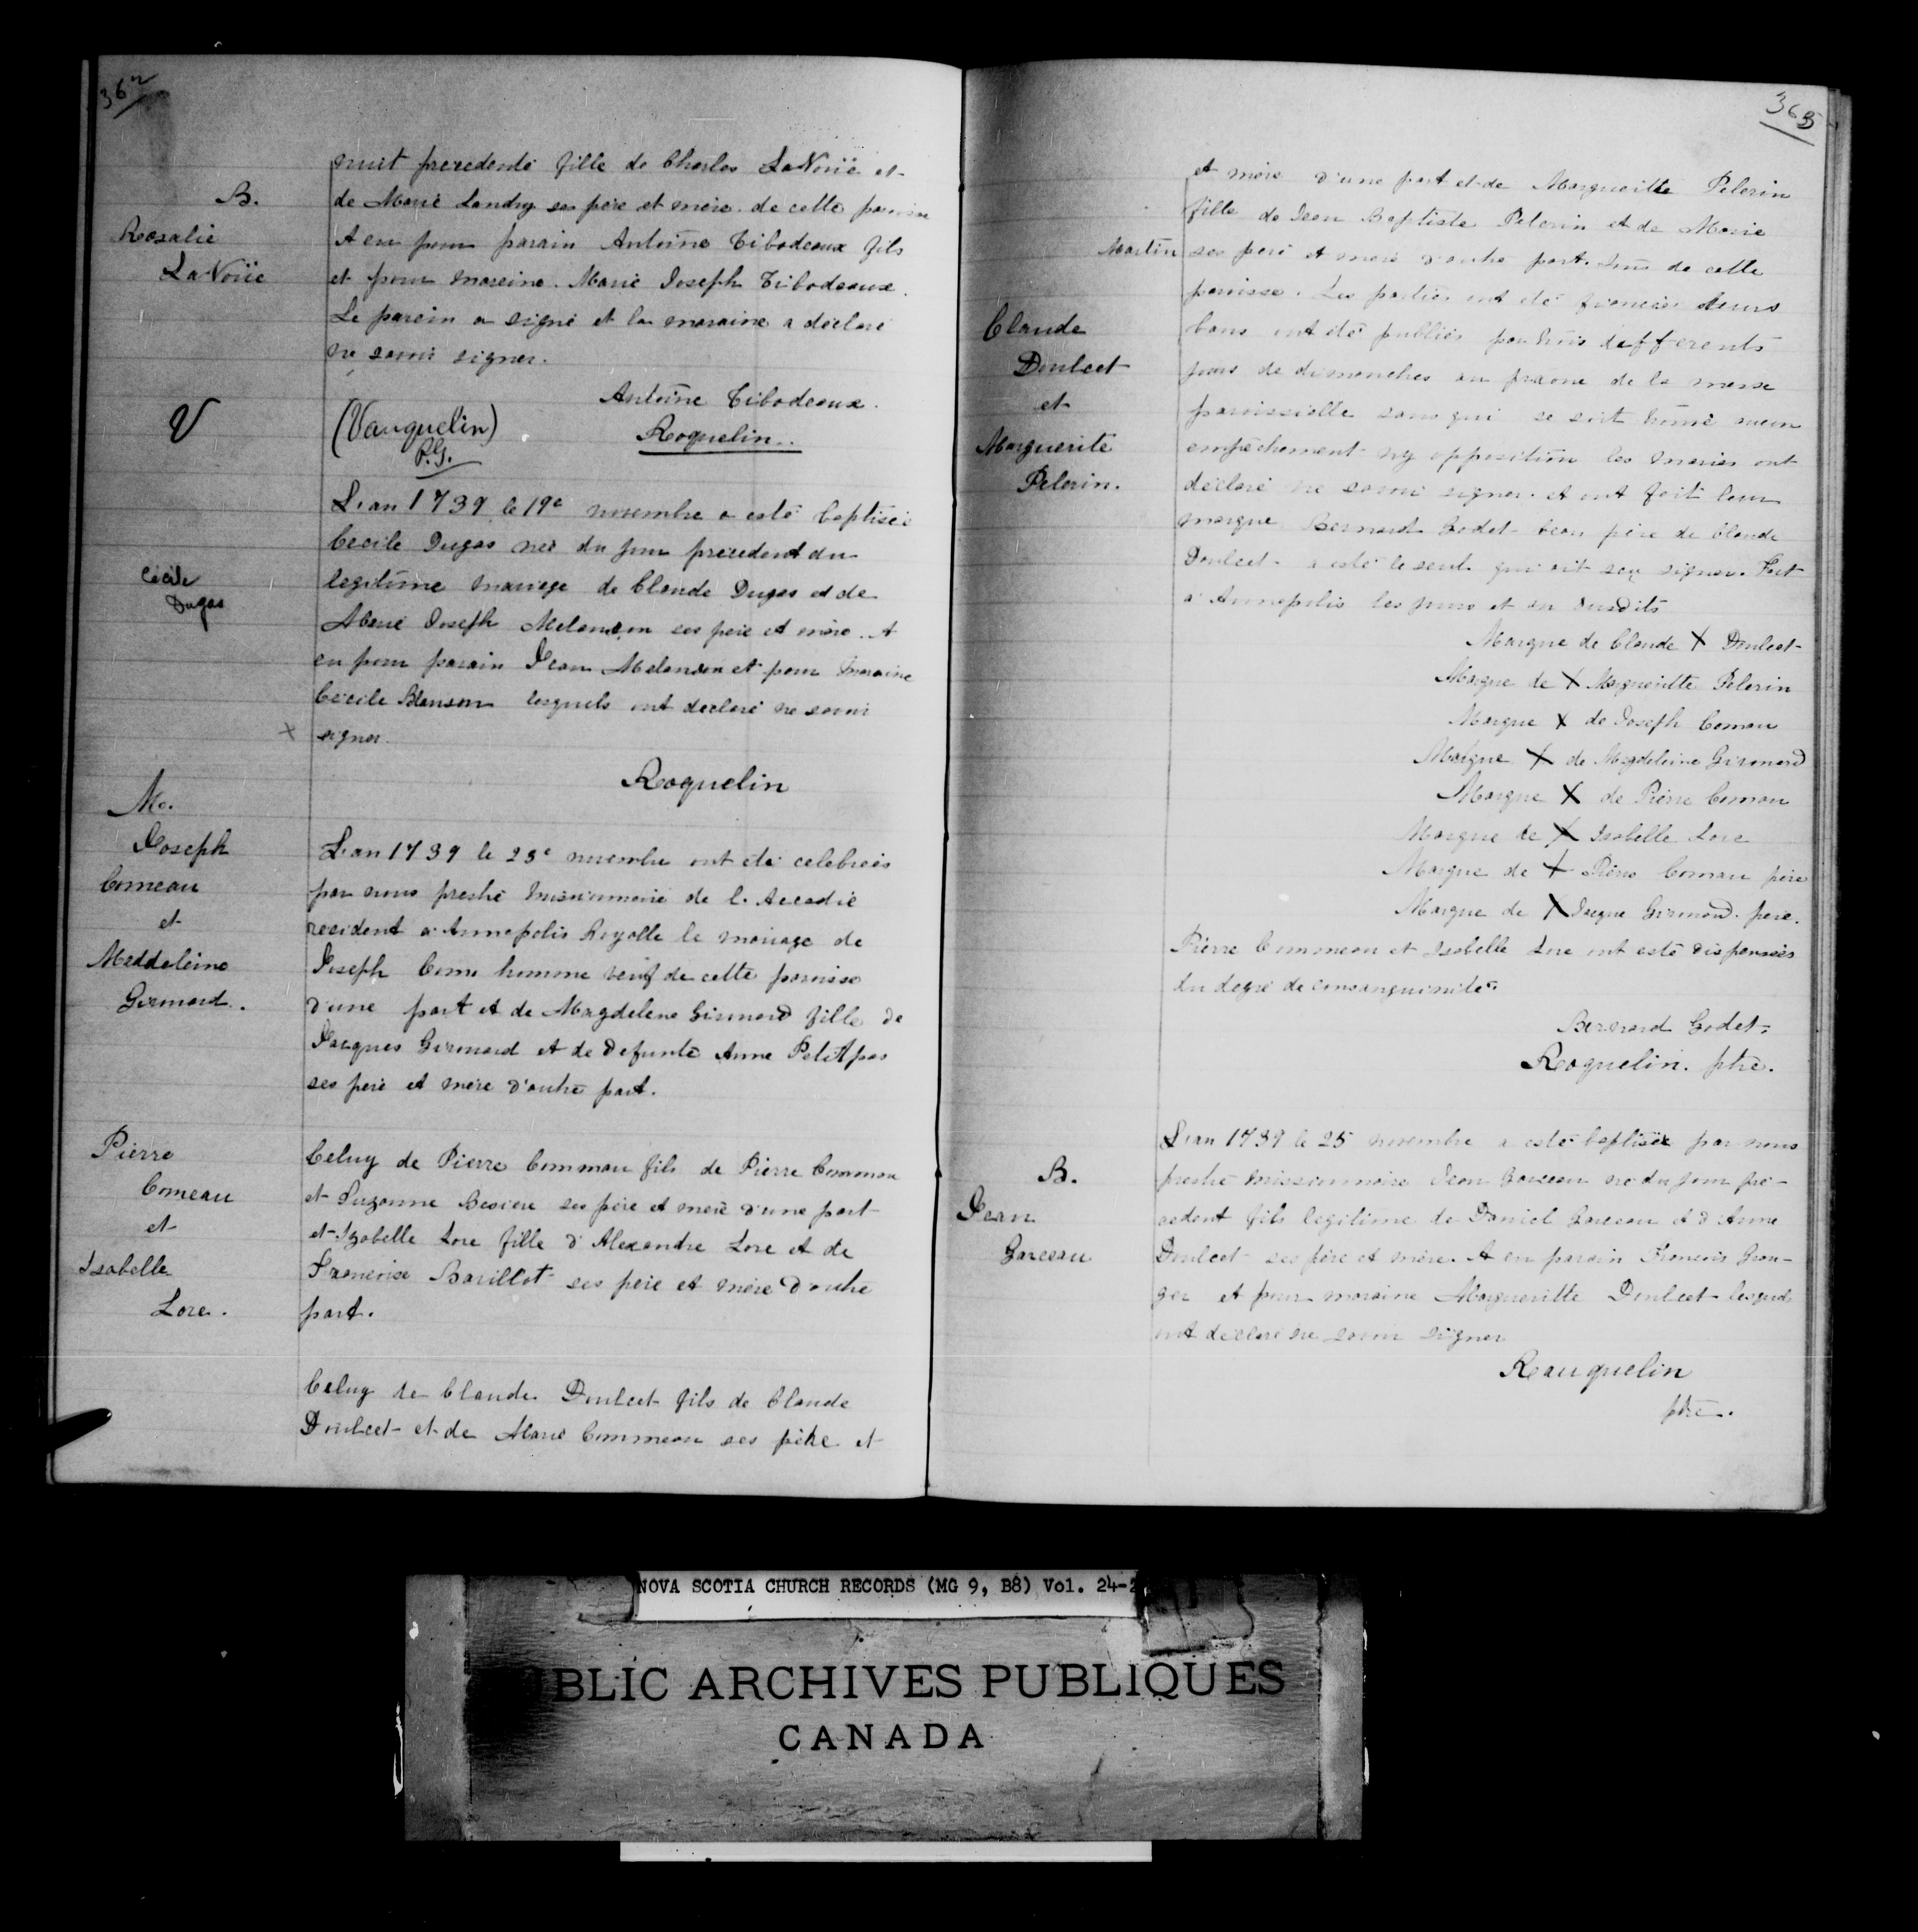 362
nuit precedente fille de Charles LaNoüe et
de Marie Landry ses père et mère de cette paroisse
B.
Rosalie
LaNoüe
A eu pour parain Antoine Tibodeaux fils
et pour mareine. Marie Joseph Tibodeaux.
Le parein a signé et la maraine a déclaré
ne savoir signer.
Antoine Tibodeaux.
V
(Vauquelin)
P.G.
Roquelin..
L'an 1739 le 19e novembre a esté baptisée
Cecile Dugas née du jour precedent du
Cécile
Dugas
legitime mariage de Claude Dugas et de
Marie Joseph Melanson ses père et mère. A
eu pour parain Jean Melanson et pour maraine
Cecile Blanson lesquels ont declaré ne savoir
x signer.
Roquelin
M.
Joseph
Comeau
et
Meddeleine
Girmard.
L'an 1739 le 23e novembre ont été celebrées
par nous prestre missionnaire de l'Accadie
resident a Annapolis Royalle le mariage de
Joseph Como homme veuf de cette paroisse
d'une part et de Magdelene Girmard fille de
Jacques Girmard et de defunte Anne Petitpas
ses pere et mère d'autre part.
Pierre
Comeau
et
Isabelle
Lore.
Celuy de Pierre Commau fils de Pierre Commau
et Suzanne ses père et mère d'une part
et Izabelle Lore fille d'Alexandre Lore et de
Francoise Barillot ses père et mère d'autre
part.
Celuy de Claude Doulcet fils de Claude
Doulcet et de Marie Commeau ses père et
363
et mère d'une part et de Margueritte Pelerin
fille de Jean Baptiste Pelerin et de Marie
Martin ses père et mère d'autre part. tous de cette
paroisse. Les parties ont été fiancées leurs
Claude
Doulcet
et
Marguerite
Pelerin.
bans ont été publiés par trois differents
jours de dimanches au prône de la messe
paroissialle sans qui se soit trouvé aucun
empêchement ny opposition les mariés ont
declaré ne savoir signer. et ont fait leur
marque Bernard Godet beau père de Claude
Doulcet a esté le seul qui ait seu signer. Fait
a Annapolis les jours et an susdits
Marque de Claude X Doulcet
Marque de X Margueritte Pelerin
Marque X de Joseph Comau
Marque X de Magdeleine Girmard
Marque X de Pierre Comau
Marque de X Isabelle Lore
Marque de X Pierre Comau père
Marque de X Jacque Girmard père.
Pierre Commeau et Isabelle Lore ont esté dispensés
du degré de consanguinité.
Bernard Godet.
Roquelin. ptre.
L'an 1739 le 25 novembre a esté baptisée par nous
B.
Jean
Garceau
prestre missionnaire Jean Garceau né du jour pre-
cedent fils legitime de Daniel Garceau et d'Anne
Doulcet ses père et mère. A eu parain Francois Gran-
ger et pour maraine Margueritte Doulcet lesquels
ont declaré ne savoir signer
Rauquelin
ptre.
NOVA SCOTIA CHURCH RECORDS (MG 9, B8) Vol. 24-2
BLIC ARCHIVES PUBLIQUES
CANADA